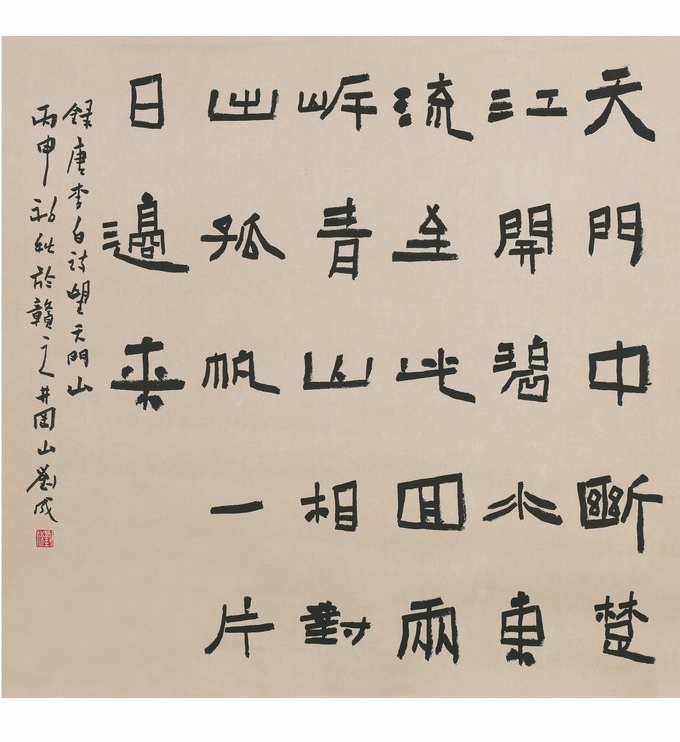 天門中斷楚
江開碧水東
流至此回兩
岸青山相對
出孤帆一片
日邊來
録唐李白詩望天門山
丙申初秋於贛之井岡山劉成